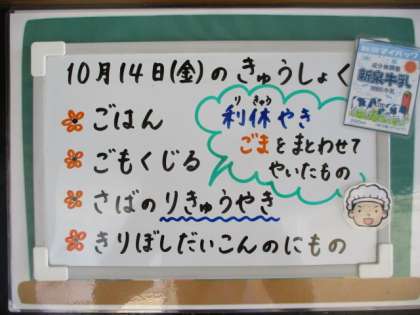 10月14日(金)のきゅうしょく
ごはん
ごもくじる
さばのりきゅうやき
きりぼしだいこんのにもの
りきゅう
利休やき
ごまをまとわせて
やいたもの
新泉牛乳